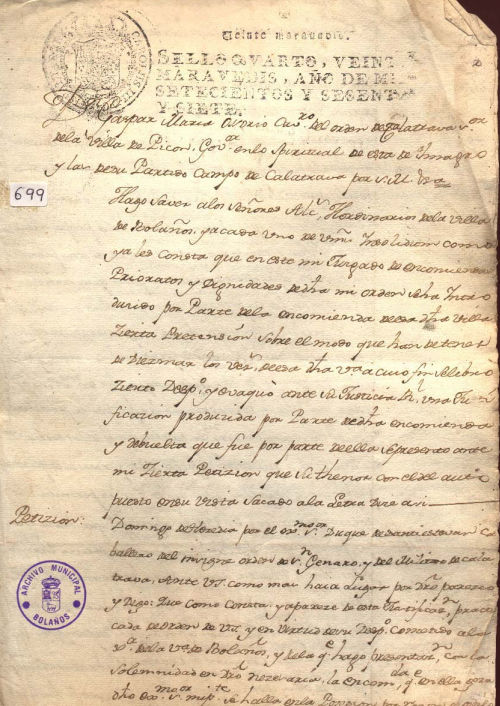 Veinte maravedis.
SELLO QVARTO, VEINT
MARAVEDIS, AÑO DE MI
SETECIENTOS Y SESENT
Y SIETE.
Gaspar Maria Cav.ro del orden de Calatrava s.or
de la villa de Picon, Gov.or en lo spiritual de esta de Almagro
y las de su Partido Campo de Calatrava por S. M. &a
699
Hago saver a los señores Alc.s Hordinarios de la villa
de Bolaños, y a cada uno de vms. Insolidum como
ya les consta que en este mi Juzgado de encomiendas
Prioratos y Dignidades de dha mi orden se ha Intro
ducido por Parte de la encomienda de esa dha villa
Zierta Pretension sobre el modo que han de tener
de Diezmar los vez.s de esa dha v.a a cuio fin se libro
Ziento Desp.o, y evaquò ante su Justicia R.l una Jus
tificacion producida por Parte de dha encomienda
y debuelta que fue por parte de ella se presento ante
mi Zierta Petizion que su thenor con el del auto
puesto en su vista sacado a la Letra dize asi
Petizion:
Domingo de Heredia por el ex.mo s.or Duque de Santisteban Ca
ballero del insigne orden de s.n Genaro, y del Militar de Cala
trava, Ante V.S. como mas haia Lugar por Dro parezco
y Digo: Que como Consta, y apareze de esta Justificaz.n prac
cada de orden de V.S. y en virtud de su Desp.o Cometido a la
de la v.a de Bolaños, y de la q.e hago presentaz.n con la
solemnidad en Dro nezesaria, la encom.da q.e en ella goza
dho ex.mo s.or mi p.te se halla en la Posesion
ARCHIVO MUNICIPAL
BOLAÑOS